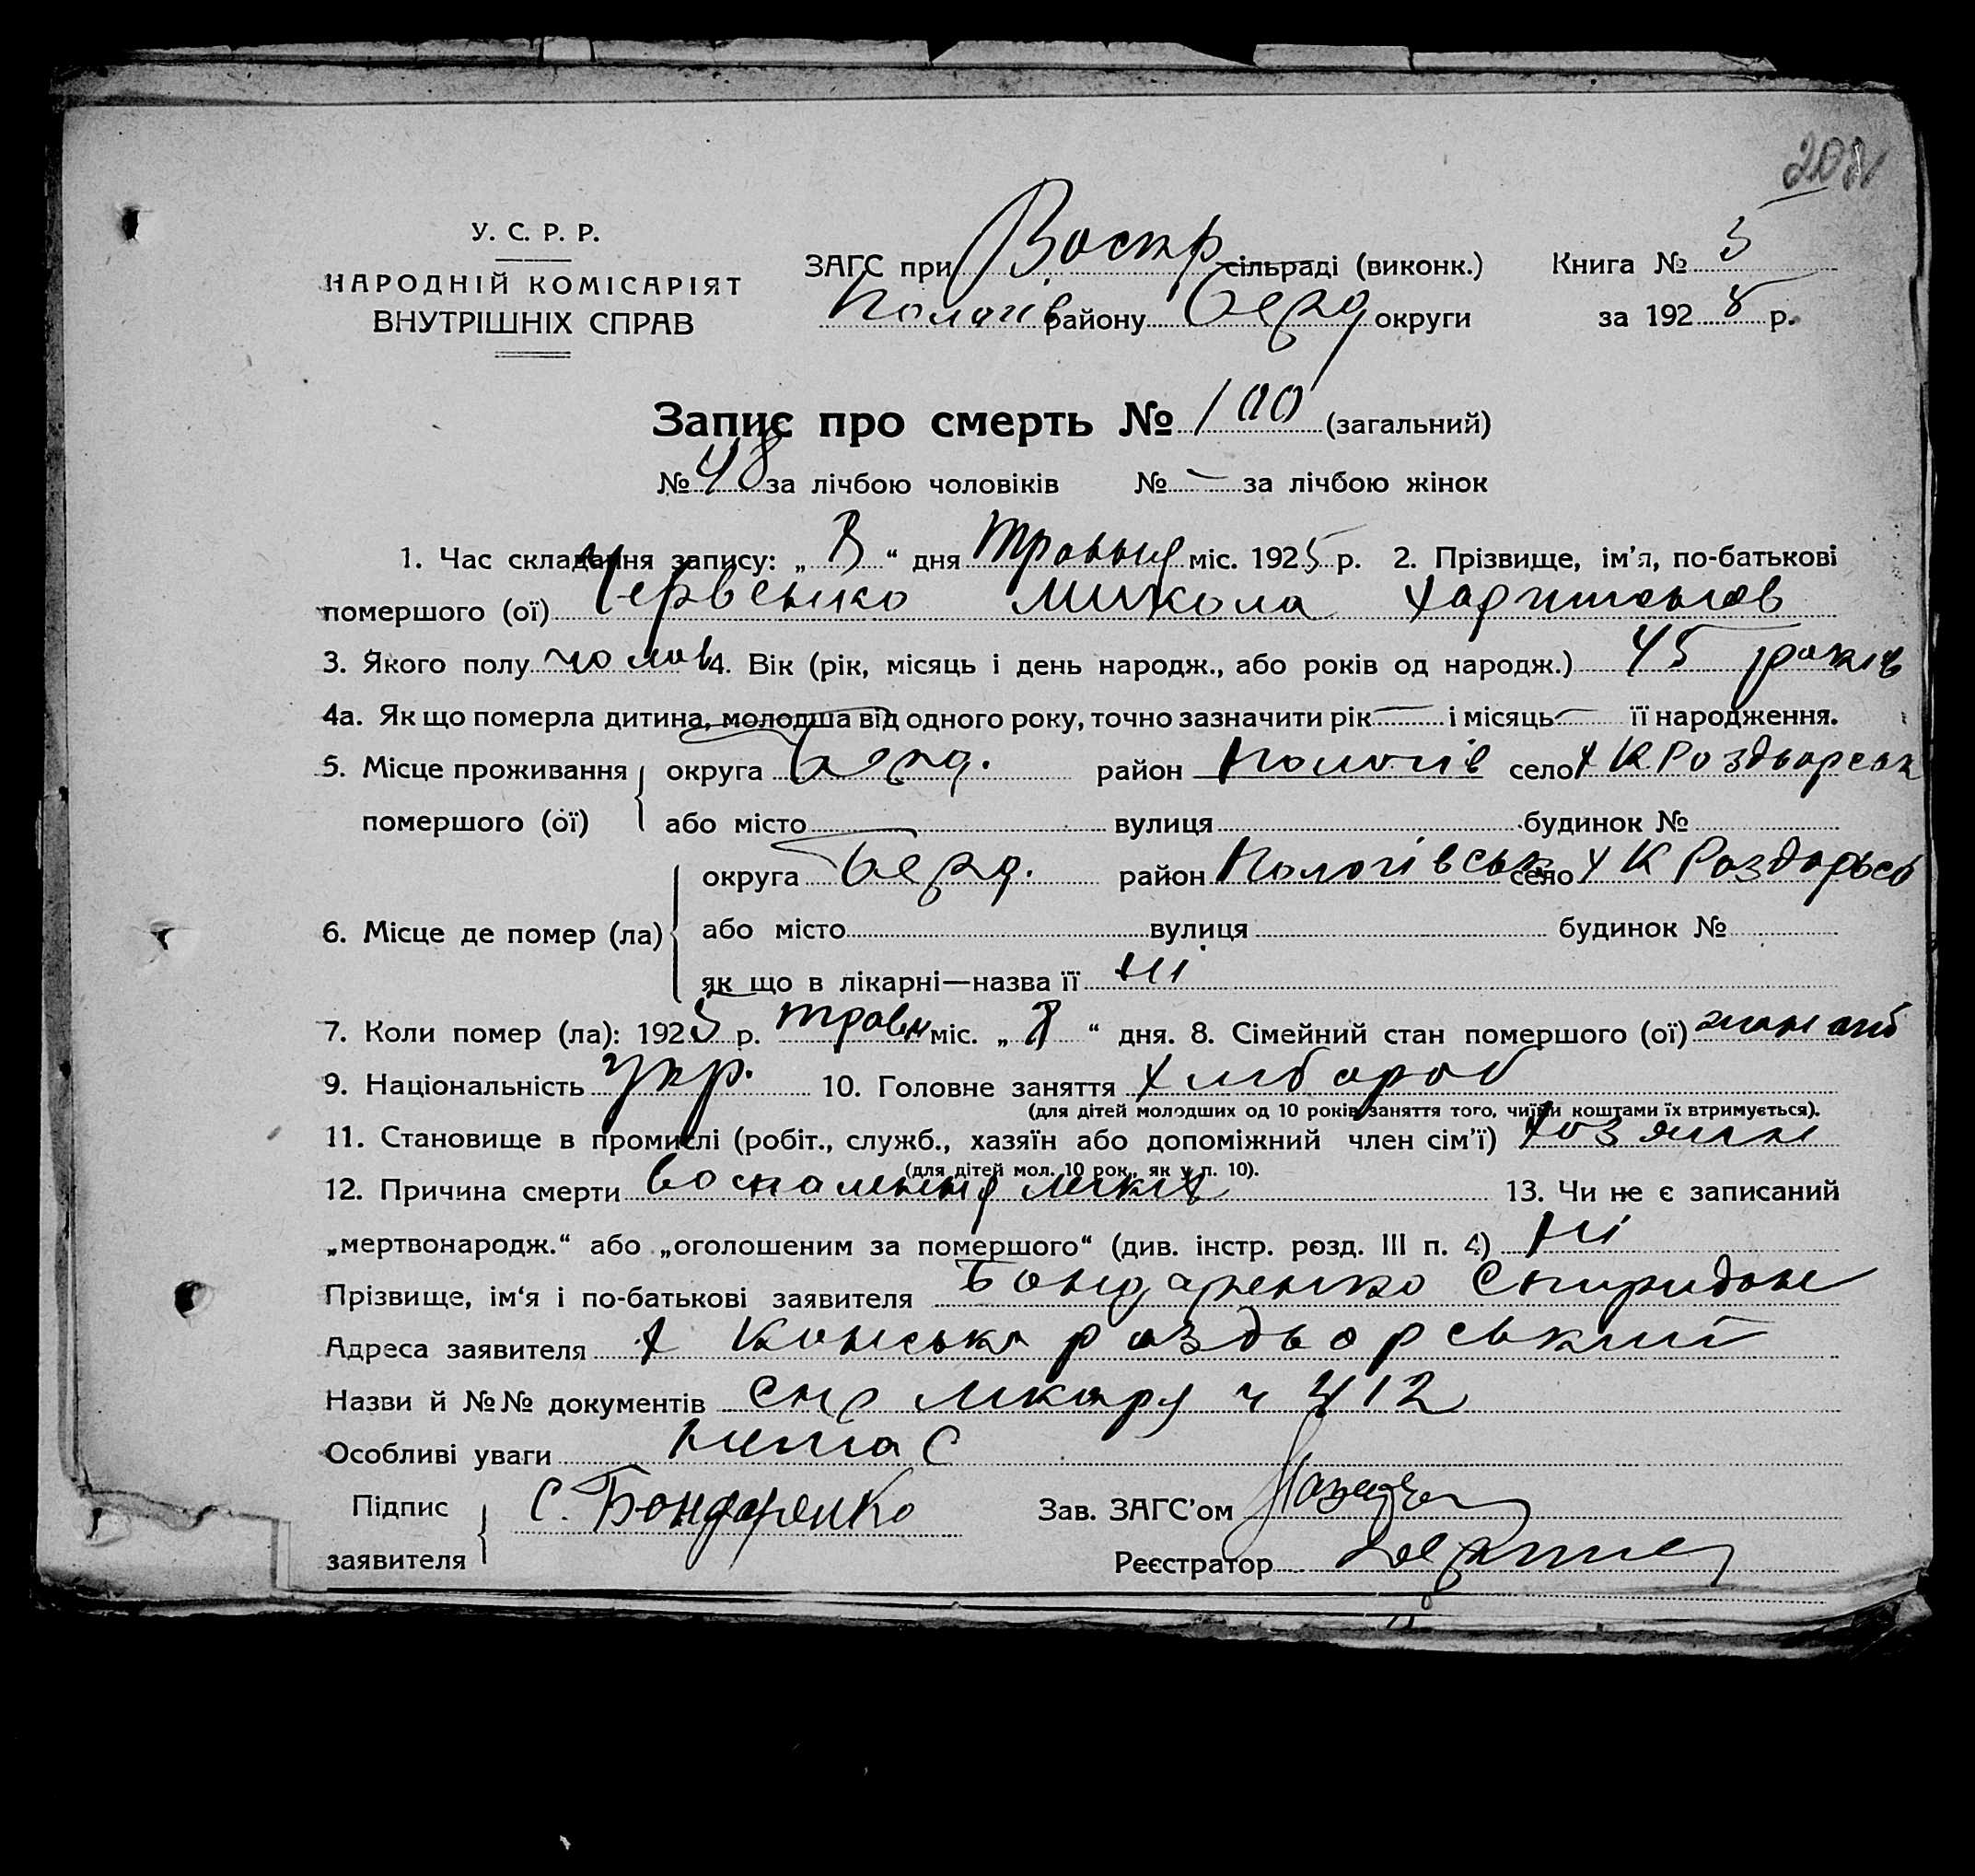 У. С. Р. Р.
НАРОДНІЙ КОМІСАРІЯТ
ВНУТРІШНІХ СПРАВ
ЗАГС при Воскр сільраді (виконк.) Книга № 5
Пологів району Берд округи за 192 р.
Запис про смерть № 100 (загальний)
№ 48 за лічбою чоловіків № — за лічбою жінок
1. Час складання запису: „ “ дня Травня міс. 1925 р. 2. Прізвище, ім’я, по-батькові
помершого (ої) Червенко Микола Харитонов
3. Якого полу чолов 4. Вік (рік, місяць і день народж., або років од народж.) 45 років
4а. Як що померла дитина, молодша від одного року, точно зазначити рік — і місяць — її народження.
5. Місце проживання помершого (ої) округа Берд. район Пологів село х К Роздворськ
або місто вулиця будинок №
6. Місце де помер (ла) округа Берд. район Пологівськ село х К Роздорьсь
або місто вулиця будинок №
як що в лікарні—назва її ні
7. Коли помер (ла): 1925 р. травн міс. „ “ дня. 8. Сімейний стан помершого (ої)
9. Національність укр. 10. Головне заняття хлібороб
(для дітей молодших од 10 років заняття того, чиїми коштами їх втримується).
11. Становище в промислі (робіт., служб., хазяїн або допоміжний член сім’ї) хозяин
(для дітей мол. 10 рок., як у п. 10).
12. Причина смерти воспаления легких 13. Чи не є записаний
„мертвонародж.“ або „оголошеним за помершого“ (див. інстр. розд. III п. 4) ні
Прізвище, ім‘я і по-батькові заявителя Бондаренко Спиридон
Адреса заявителя х Консько роздворський
Назви й №№ документів лікаря ч 412
Особливі уваги нима є
Підпис заявителя С. Бондаренко Зав. ЗАГС’ом
Реєстратор